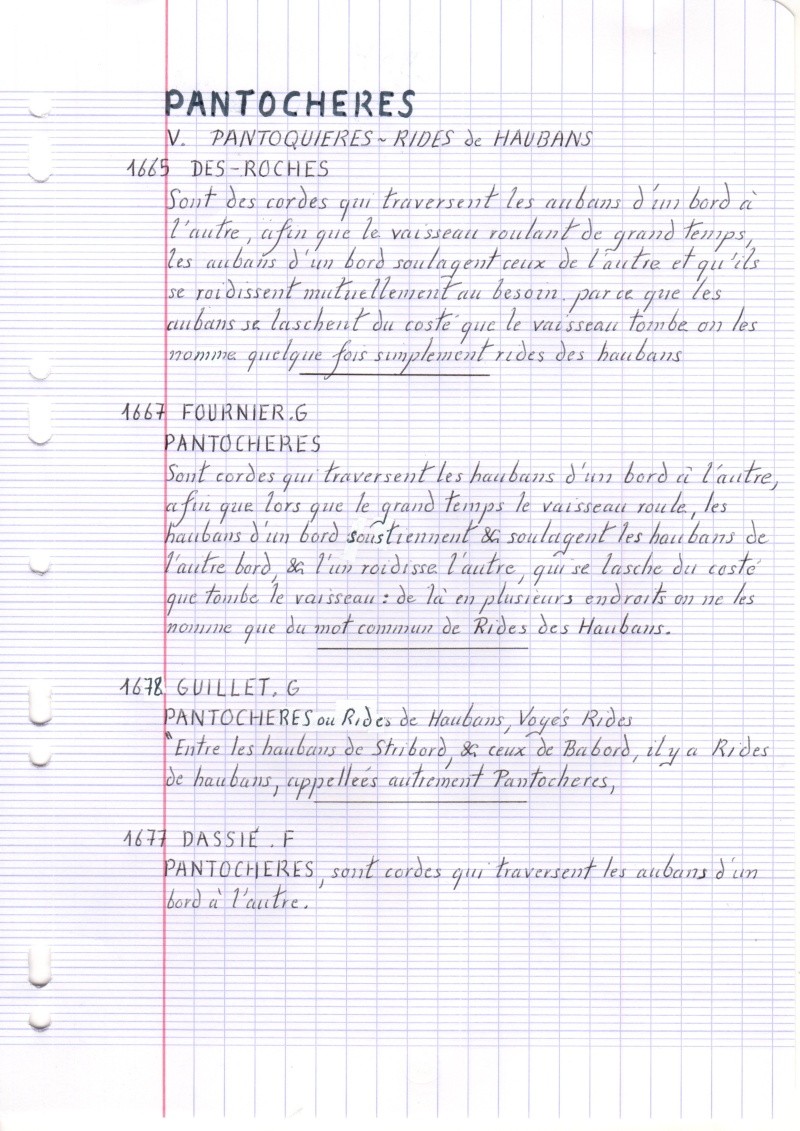 PANTOCHERES
V. PANTOQUIERES ~ RIDES de HAUBANS
1665 DES-ROCHES
Sont des cordes qui traversent les aubans d'un bord à
l'autre, afin que le vaisseau roulant de grand temps,
les aubans d'un bord soulagent ceux de l'autre et qu'ils
se roidissent mutuellement au besoin. parce que les
aubans se laschent du costé que le vaisseau tombe on les
nomme quelque fois simplement rides des haubans
1667 FOURNIER.G
PANTOCHERES
Sont cordes qui traversent les haubans d'un bord à l'autre,
afin que lors que le grand temps le vaisseau roule, les
haubans d'un bord soustiennent & soulagent les haubans de
l'autre bord, & l'un roidisse l'autre, qui se lasche du costé
que tombe le vaisseau : de là en plusieurs endroits on ne les
nomme que du mot commun de Rides des Haubans.
1678 GUILLET. G
PANTOCHERES ou Rides de Haubans, Voyés Rides
"Entre les haubans de Stribord, & ceux de Babord, il y a Rides
de haubans, appelleés autrement Pantocheres,
1677 DASSIÉ . F
PANTOCHERES, sont cordes qui traversent les aubans d'un
bord à l'autre.